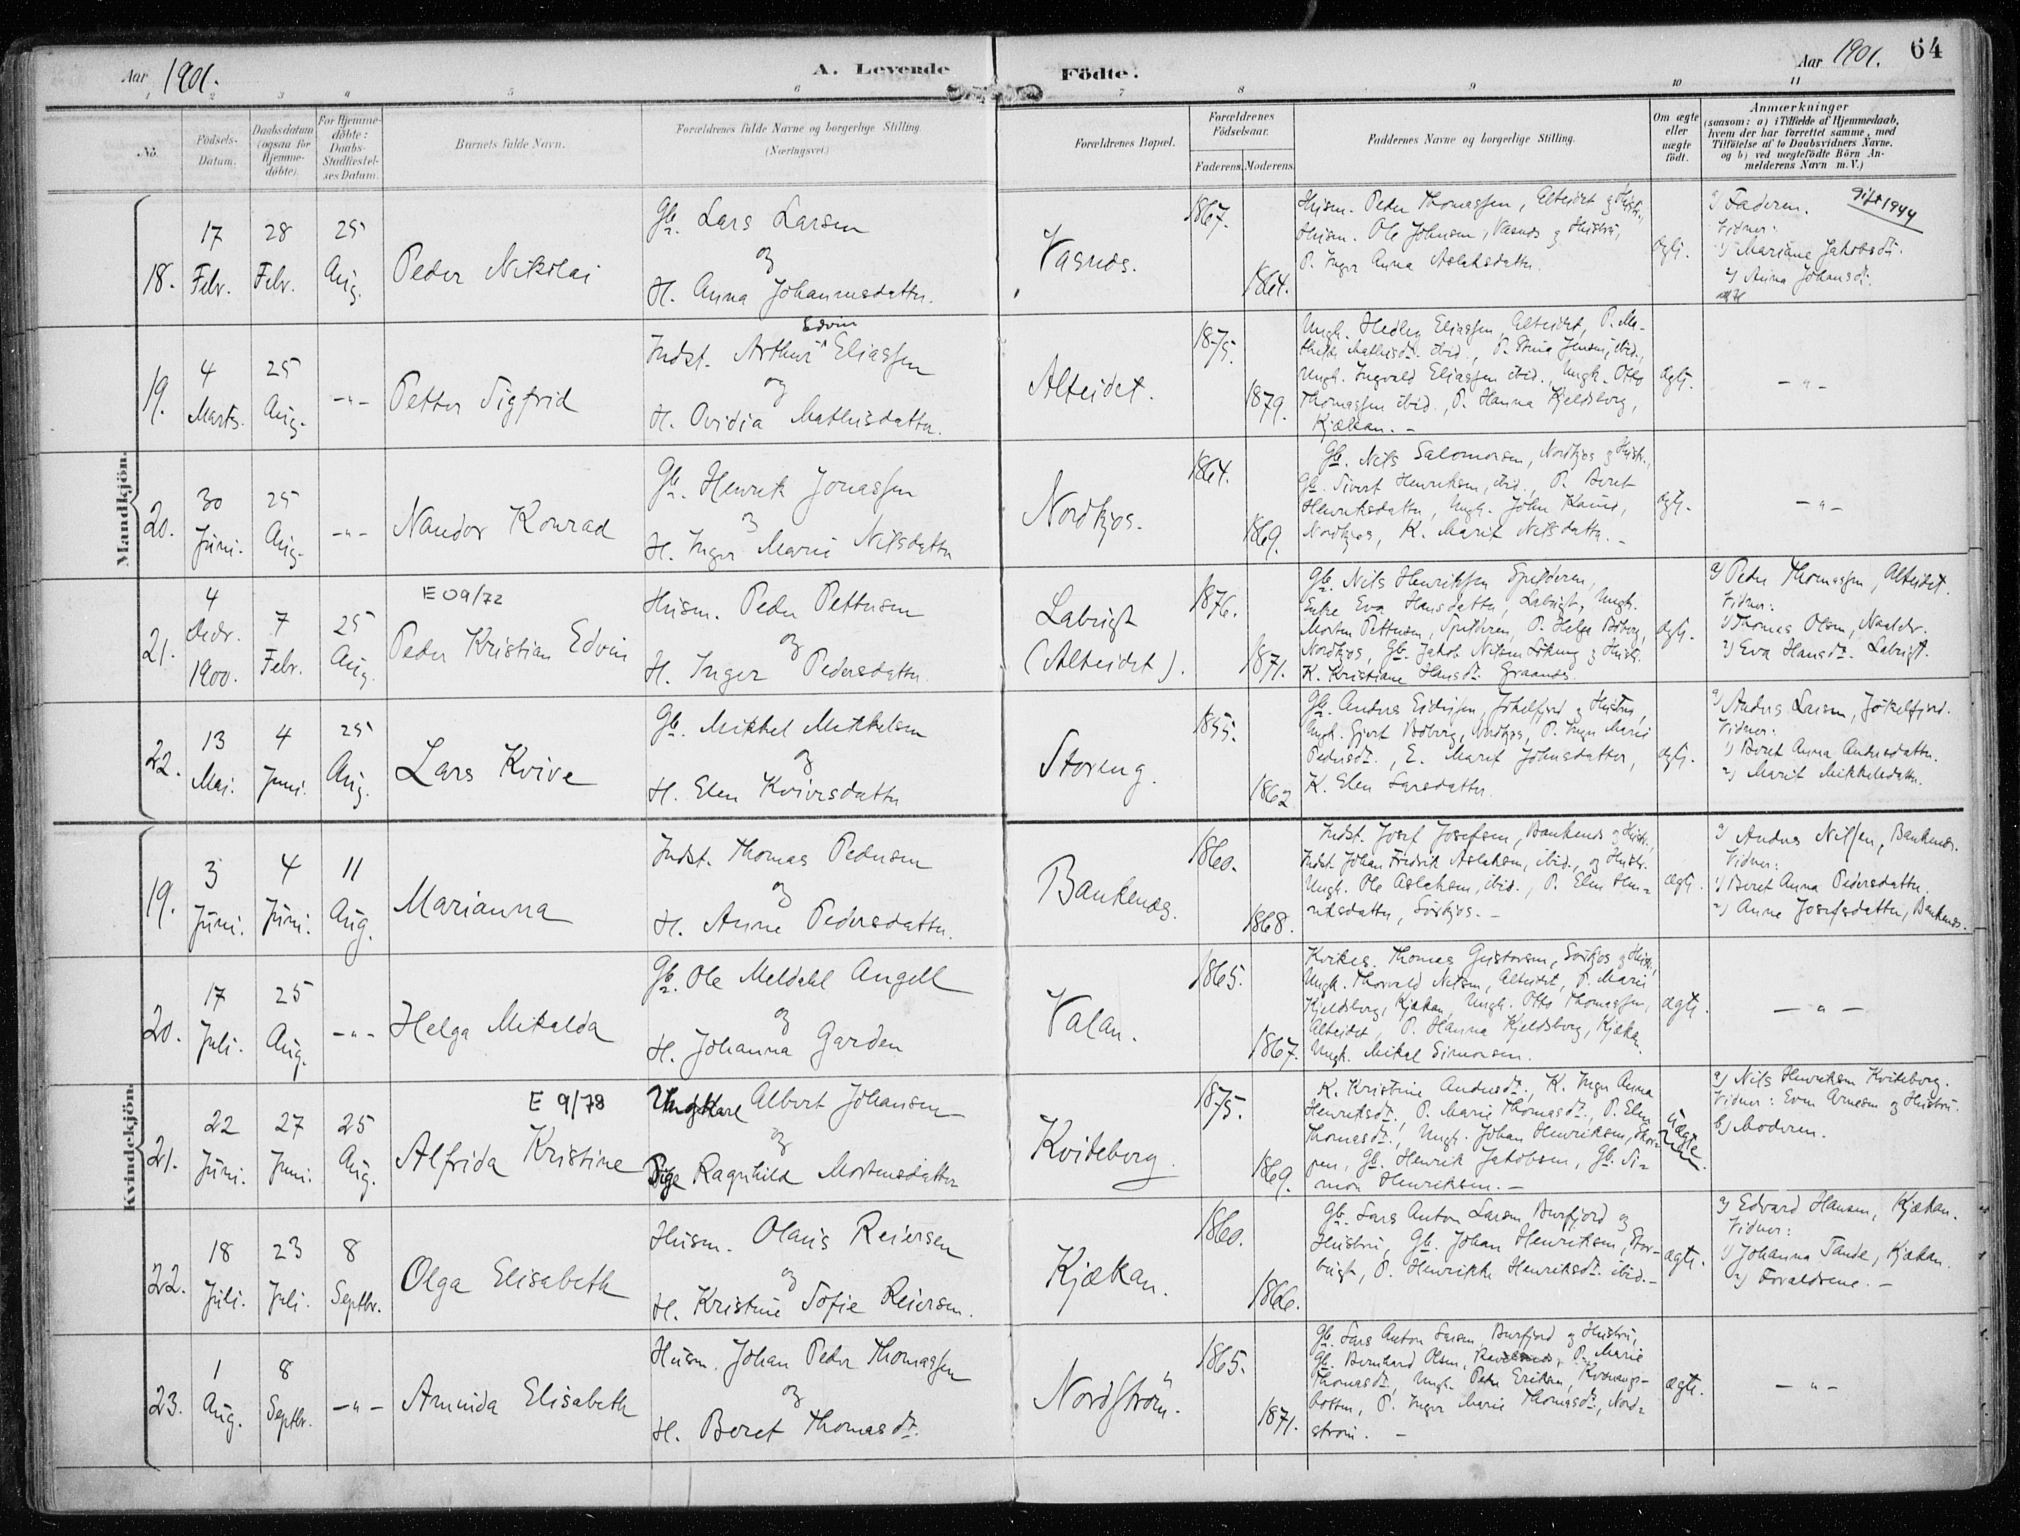 Aar 1901.
A. Levende Födte.
Aar 1901.
64
1 2 3 4 5 6 7 8 9 10 11
No.
Födsels-
Datum.
Daabsdatum
(ogsaa for
Hjemme-
döbte).
For Hjemme-
döbte:
Daabs-
Stadfæstel-
ses Datum.
Barnets fulde Navn.
Forældrenes fulde Navne og borgerlige Stilling.
(Næringsvei.)
Forældrenes Bopæl.
Forældrenes
Födselsaar.
Faderens. Moderens.
Faddernes Navne og borgerlige Stilling.
Om ægte
eller
uægte
födt.
Anmærkninger
(saasom: a) i Tilfælde af Hjemmedaab,
hvem der har forrettet samme, med
Tilföielse af to Daabsvidners Navne.
og b) ved uægtefödte Börn An-
melderens Navn m. V.)
Mandkjön.
18.
17
Febr.
28
Febr.
25
Aug.
Peder Nikolai
Gb. Lars Larsen
og
H. Anna Johannesdatter.
Vasnæs.
1867.
1864.
Husm. Peder Thomassen, Alteidet og Hustr.,
Husm. Ole Johnsen, Vasnæs og Hustru,
P. Inger Anna Aslaksdatter.
ægt.
a) Faderen.
Gift 1944
Vidner:
1) Mariane Jakobsdt.
2) Anna Johansdt.
19.
4
Marts.
25
Aug.
-"-
Petter Sigfrid
Edvin
Indst. Arthur Eliassen
og
H. Ovidia Mathisdatter.
Alteidet.
1875.
1879.
Ungk. Hedley Eliassen, Alteidet, P. Ma-
thilde Mathisdt. ibid., P. Stina Jensen, ibid.,
Ungk. Ingvald Eliassen ibid., Ungk. Otto
Thomassen ibid., P. Hanna Kjeldsberg,
Kjækan. -
ægt.
- " -
20.
30
Juni.
25
Aug.
-"-
Nandor Konrad
Gb. Henrik Jonassen
og
H. Inger Marie Nilsdatter
Nordkjos.
1864.
1869.
Gb. Nils Salomonsen, Nordkjos og Hustr.,
Gb. Sivert Henriksen, ibid., P. Beret
Henriksdatter, Ungk. John
Nordkjos, K. Marit Nilsdatter. -
ægt.
- " -
21.
4
Decbr.
1900.
7
Febr.
25
Aug.
E 09/72
Peder Kristian Edvin
Husm. Peder Pettersen
og
H. Inger Pedersdatter.
Labugt
(Alteidet).
1876.
1871.
Gb. Nils Henriksen Spilderen,
Enke Eva Hansdatter, Labugt, Ungk.
Morten Pettersen, Spilderen, P. Helga Boberg,
Nordkjos, Gb. Jakob Nilsen Lökeng og Hustr.
K. Kristiane Hansdt. Graanæs.
ægt.
a) Peder Thomassen, Alteidet.
Vidner:
1) Thomas Olsen,
2) Eva Hansdt. Labugt.
22.
13
Mai.
4
Juni.
25
Aug.
Lars Kvive
Gb. Mikkel Mikkelsen
og
H. Elen Kviversdatter
Storeng.
1855.
1862
Gb. Anders Eidissen, Jökelfjord og Hustru,
Ungk. Gjert Boberg, Nordkjos, P. Inger Marie
Pedersdt., E. Marit Johnsdatter,
K. Elen Larsdatter.
ægt.
a) Anders Larsen, Jökelfjord.
Vidner:
1) Beret Anna Andersdatter.
2) Marit Mikkelsdatter.
Kvindekjön.
19.
3
Juni.
4
Juni.
11
Aug.
Marianna
Indst. Thomas Pedersen
og
H. Anne Pedersdatter.
Bankenæs.
1860.
1868.
Indst. Josef Josefsen, Bankenæs og Hustr.,
Indst. Johan Fredrik Aslaksen, ibid., og Hustr.
Ungk. Ole Aslaksen, ibid., P. Elen Hen-
riksdatter, Sörkjos. -
ægt.
a) Anders Nilsen, Bankenæs.
Vidner:
1) Beret Anna Pedersdatter.
2) Anne Josefsdatter, Bankenæs.
20.
17
Juli.
25
Aug.
-"-
Helga Mikalda
Gb. Ole Meldahl Angell
og
H. Johanna Garden
Valan.
1865.
1867.
Thomas Gustavsen, Sörkjos og Hustr.,
Ungk. Thorvald Nilsen, Alteidet, P. Marie
Kjeldsberg, Kjækan, Ungk. Otto Thomassen,
Alteidet, P. Hanna Kjeldsberg, Kjækan.
Ungk. Mikal Simonsen.
ægt.
- " -
21.
22
Juni.
27
Juni.
25
Aug.
E 9/78
Alfrida Kristine
Ungkarl Albert Johansen
og
Pige Ragnhild Mortensdatter
Kviteberg.
1875.
1869.
K. Kristine Andersdt., K. Inger Anna
Henriksdt., P. Marie Thomasdt., P. Elen
Thomasdt., Ungk. Johan Henriksen,
Gb. Henrik Jakobsen, Gb. Si-
mon Henriksen. -
Uægte
a) Nils Henriksen Kviteberg.
Vidner: Even Arnesen og Hustru.
b) Moderen.
22.
18
Juli.
23
Juli.
8
Septbr.
Olga Elisabeth
Husm. Olaus Reiersen
og
H. Kristine Sofie Reiersen.
Kjækan.
1860.
1866.
Gb. Lars Anton Larsen Burfjord og
Hustru, Gb. Johan Henriksen, Stor-
bugt, P. Henrikke Henriksdt. ibid. -
ægt.
a) Edvard Hansen, Kjækan.
Vidner:
1) Johanna Tande, Kjækan.
2) Forældrene. -
23.
1
Aug.
8
Septbr.
-"-
Aminda Elisabeth
Husm. Johan Peder Thomassen
og
H. Beret Thomasdt.
Nordström.
1865.
1871.
Gb. Lars Anton Larsen, Burfjord og Hustru,
Gb. Bernhard Olsen, P. Marie
Thomasdt., Ungk. Peder Eriksen, Kvænangs-
botten, P. Inger Marie Thomasdt., Nord-
ström. -
ægt.
- " -